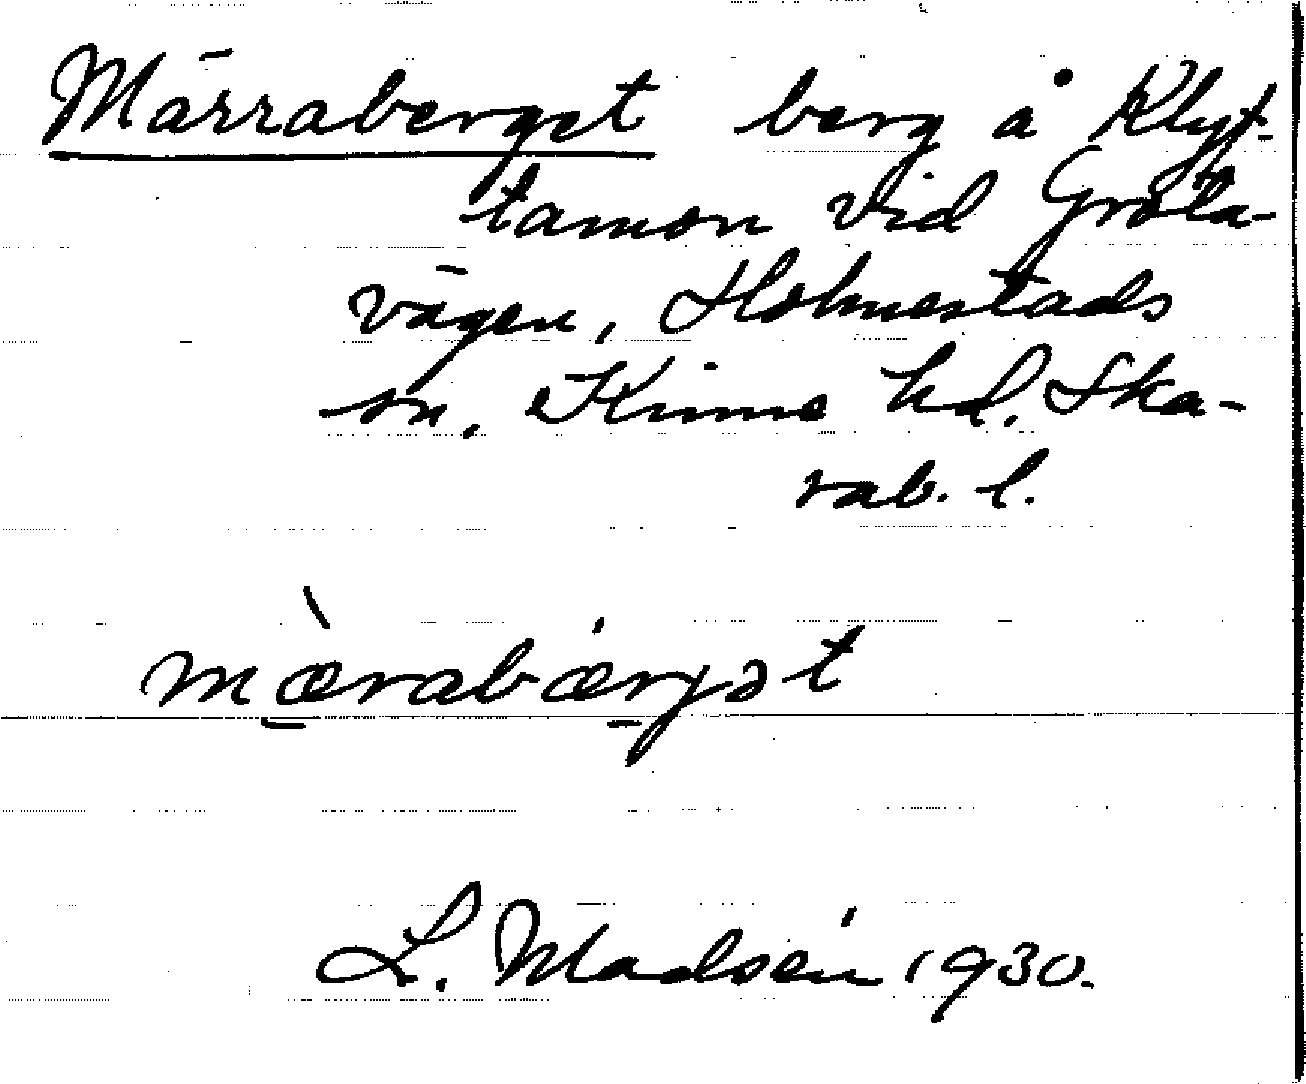 Märraberget berg å Klyf-
tamon vid Gröta-
vägen, Holmestads
sn. Kinne hd. Ska-
rab. l.
mæ̀rabæŕgət
L. Madsén 1930.